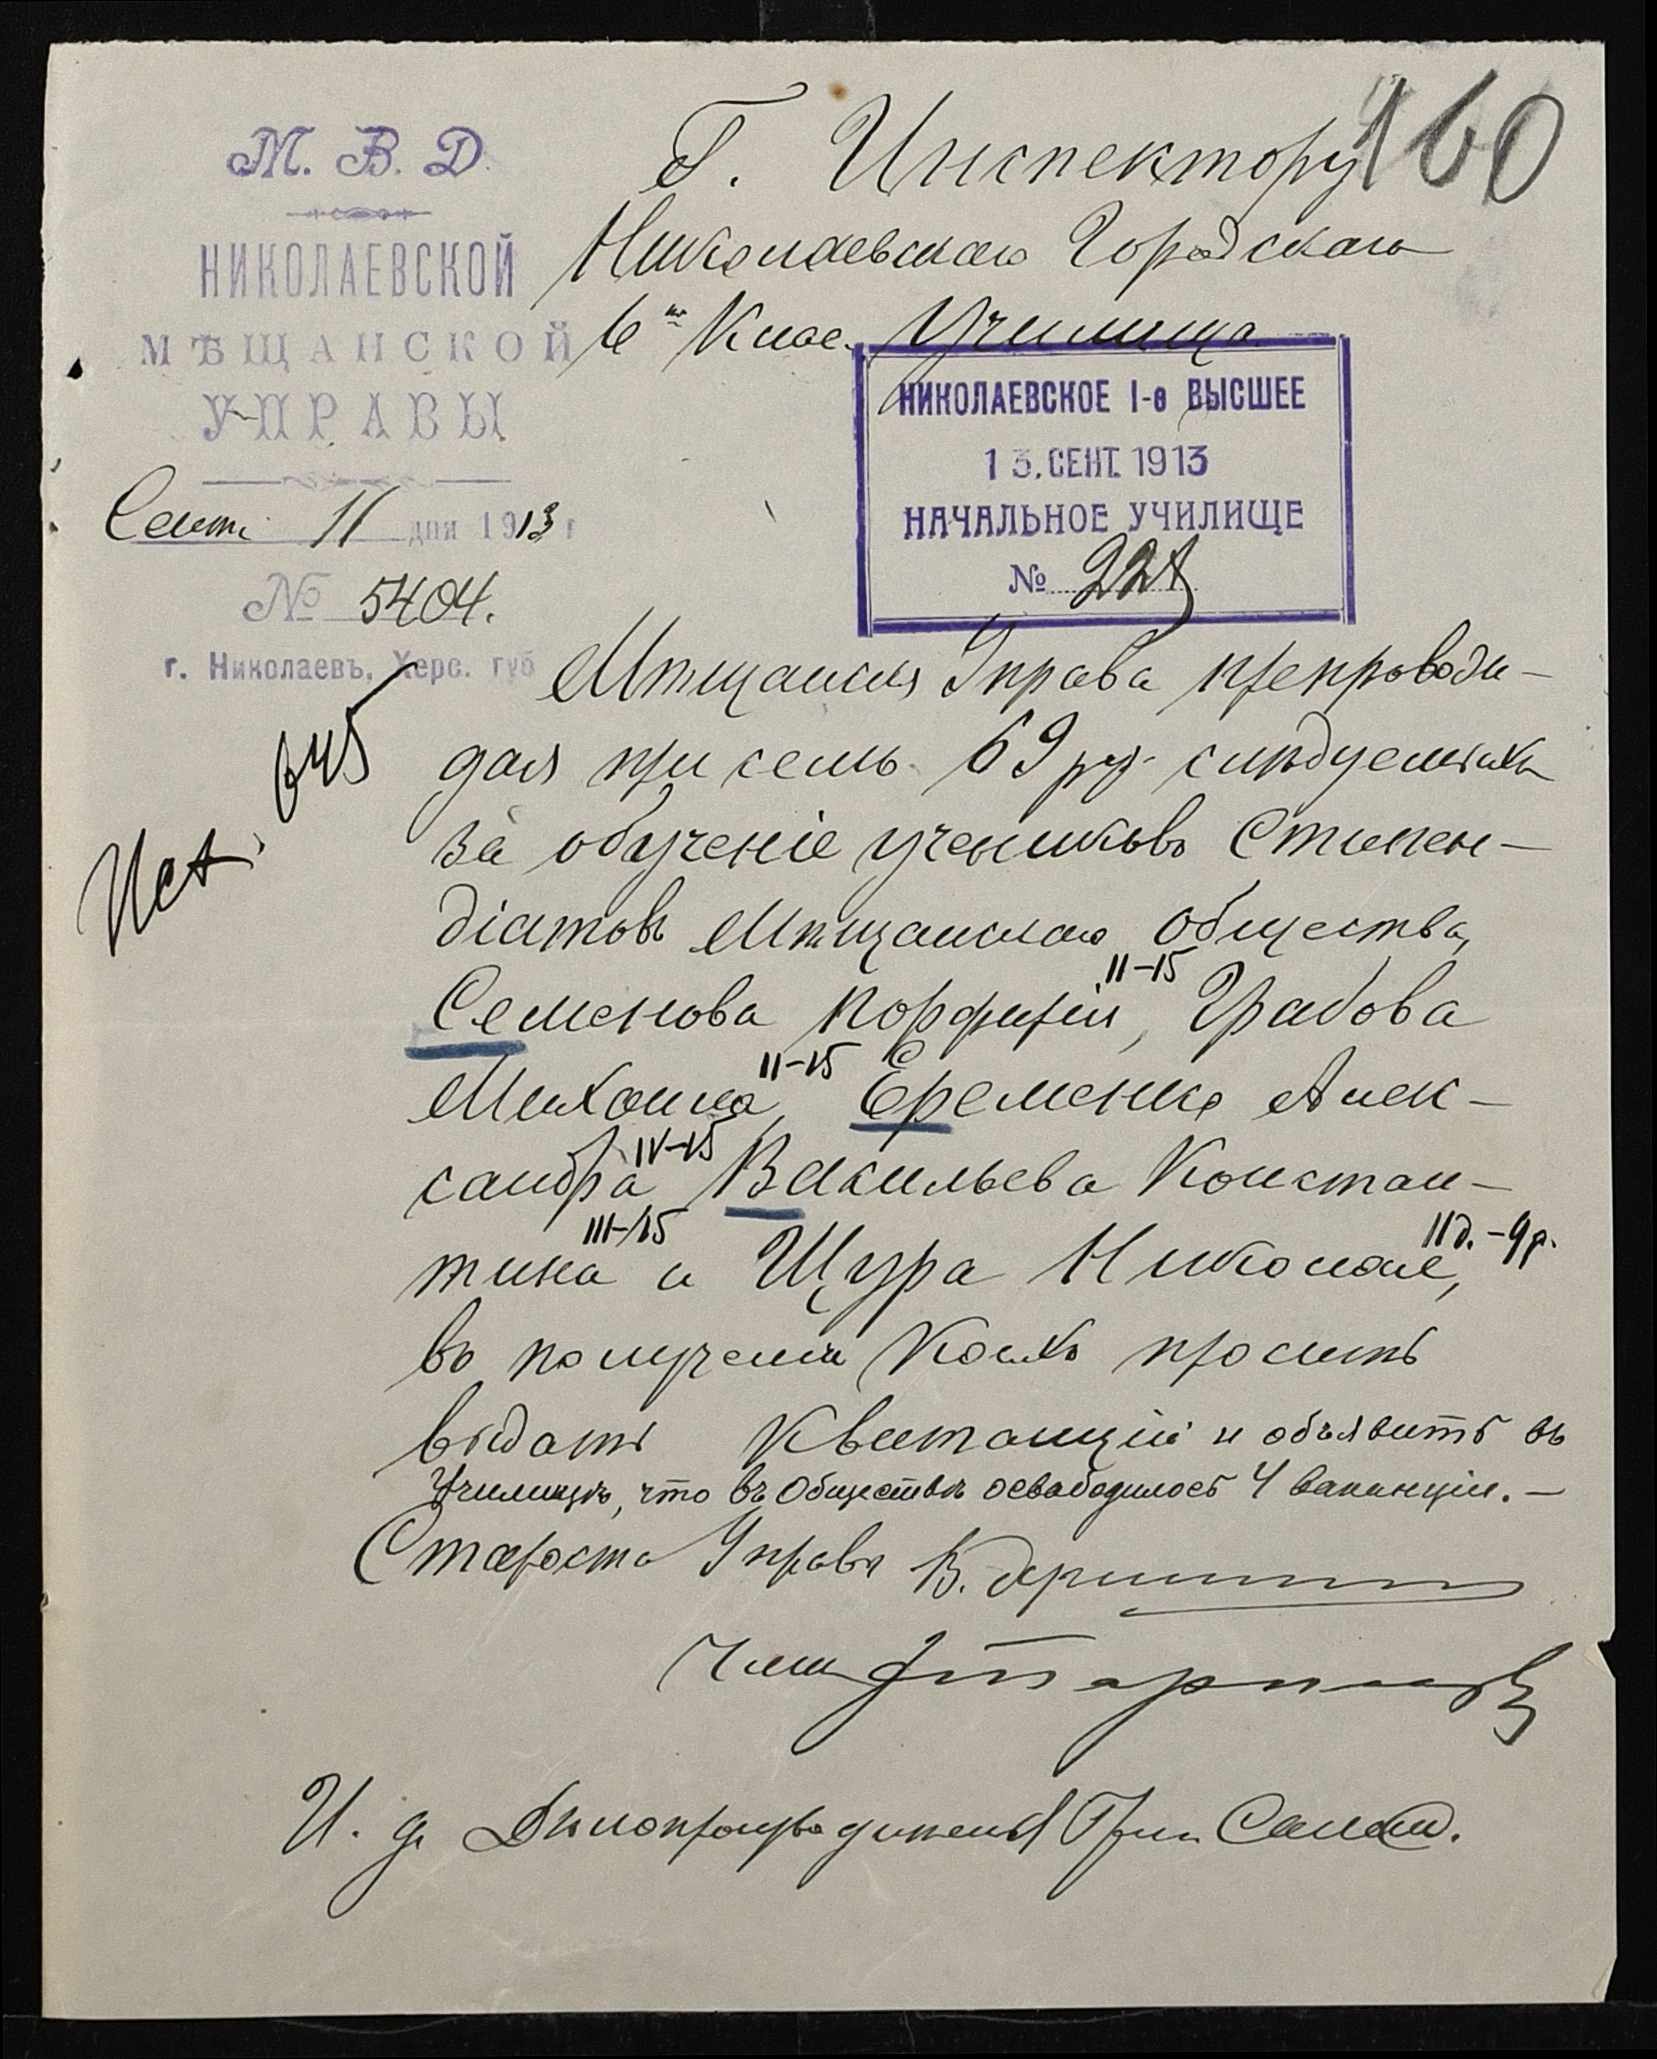 160
М. В. Д.
НИКОЛАЕВСКОЙ
МѢЩАНСКОЙ
УПРАВЫ
Сент. 11 дня 1913 г
№ 5404.
г. Николаевъ, Херс. губ
Г. Инспектору
Николаевскаго Городскаго
6ти Клас. Училища
НИКОЛАЕВСКОЕ 1-е ВЫСШЕЕ
13. СЕНТ. 1913
НАЧАЛЬНОЕ УЧИЛИЩЕ
№ 228
Исх. 645
Мѣщанская Управа препровож-
дая при семъ 69 ру. слѣдуемыхъ
за обученіе учениковъ Стипен-
діатовъ Мѣщанскаго общества,
II-15
Семенова Порфирія, Грабова
II-15
Михаила, Еременко Алек-
IV-15
сандра Васильева Констан-
III-15
IIд. - 9р.
тина и Щура Николая,
въ полученіи коихъ проситъ
выдать Квитанціи и объявить въ
Училищѣ, что въ Обществѣ освободилось 4 ваканціи. —
Староста Управы В.
Член
И. д. Дѣлопроизводителя